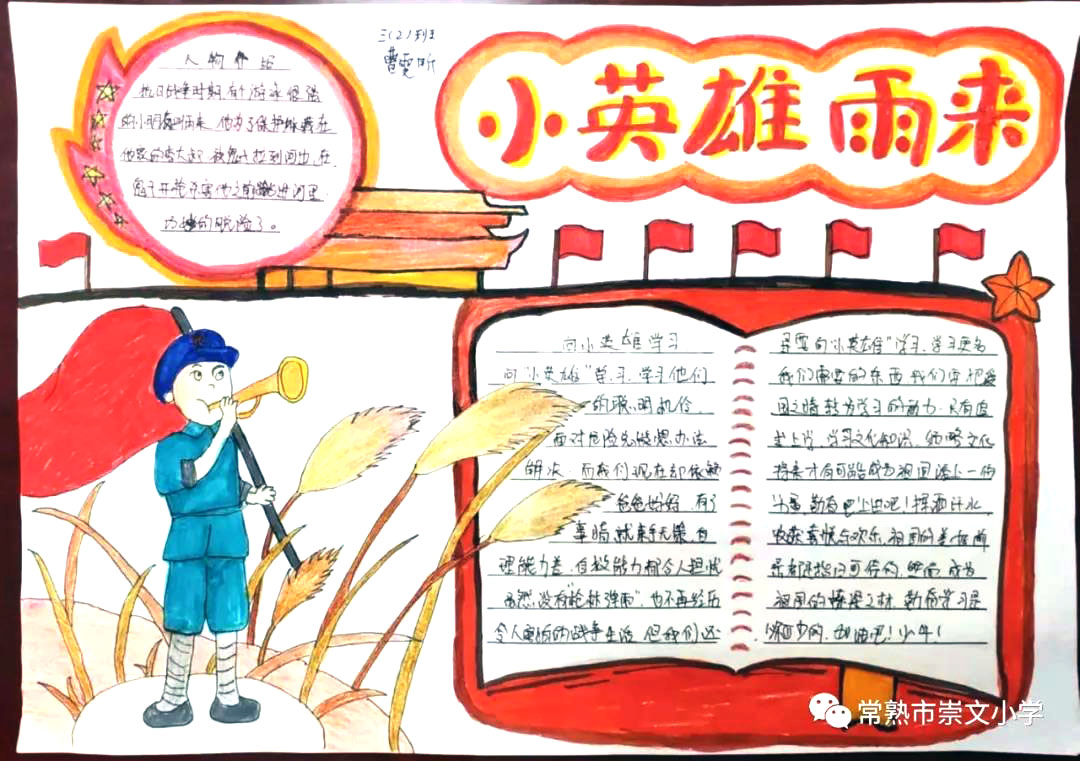 三(2)班
小英雄雨来
人物介绍
抗日战争时期有个游泳很强
的小朋友叫雨来.他为了保护
他家的李大叔.被鬼子拉到河边,在
鬼子开枪 他之前 进河里
功 的脱险了。
向小英雄学习
向“小英雄”学习,学习他们
的聪明机伶
面对危险先 想办法
解决.而我们现在却依赖
爸爸妈妈.有了
事情就束手无策.自
理能力差.自救能力都令人担忧
虽然没有“枪林弹雨”,也不再经历
令人恐怖的战争生活,但我们还
是要向“小英雄”学习.学习更多
我们需要的东西.我们要把爱
国之情转为学习的动力.只有
学习文化知识,
将来才有可能成为祖国 的
勤奋吧!上进吧!挥洒汗水,
收获 欢乐.祖国的美好前
景
祖国的栋梁之材.勤奋学习是
的.加油吧!少年!
常熟市崇文小学